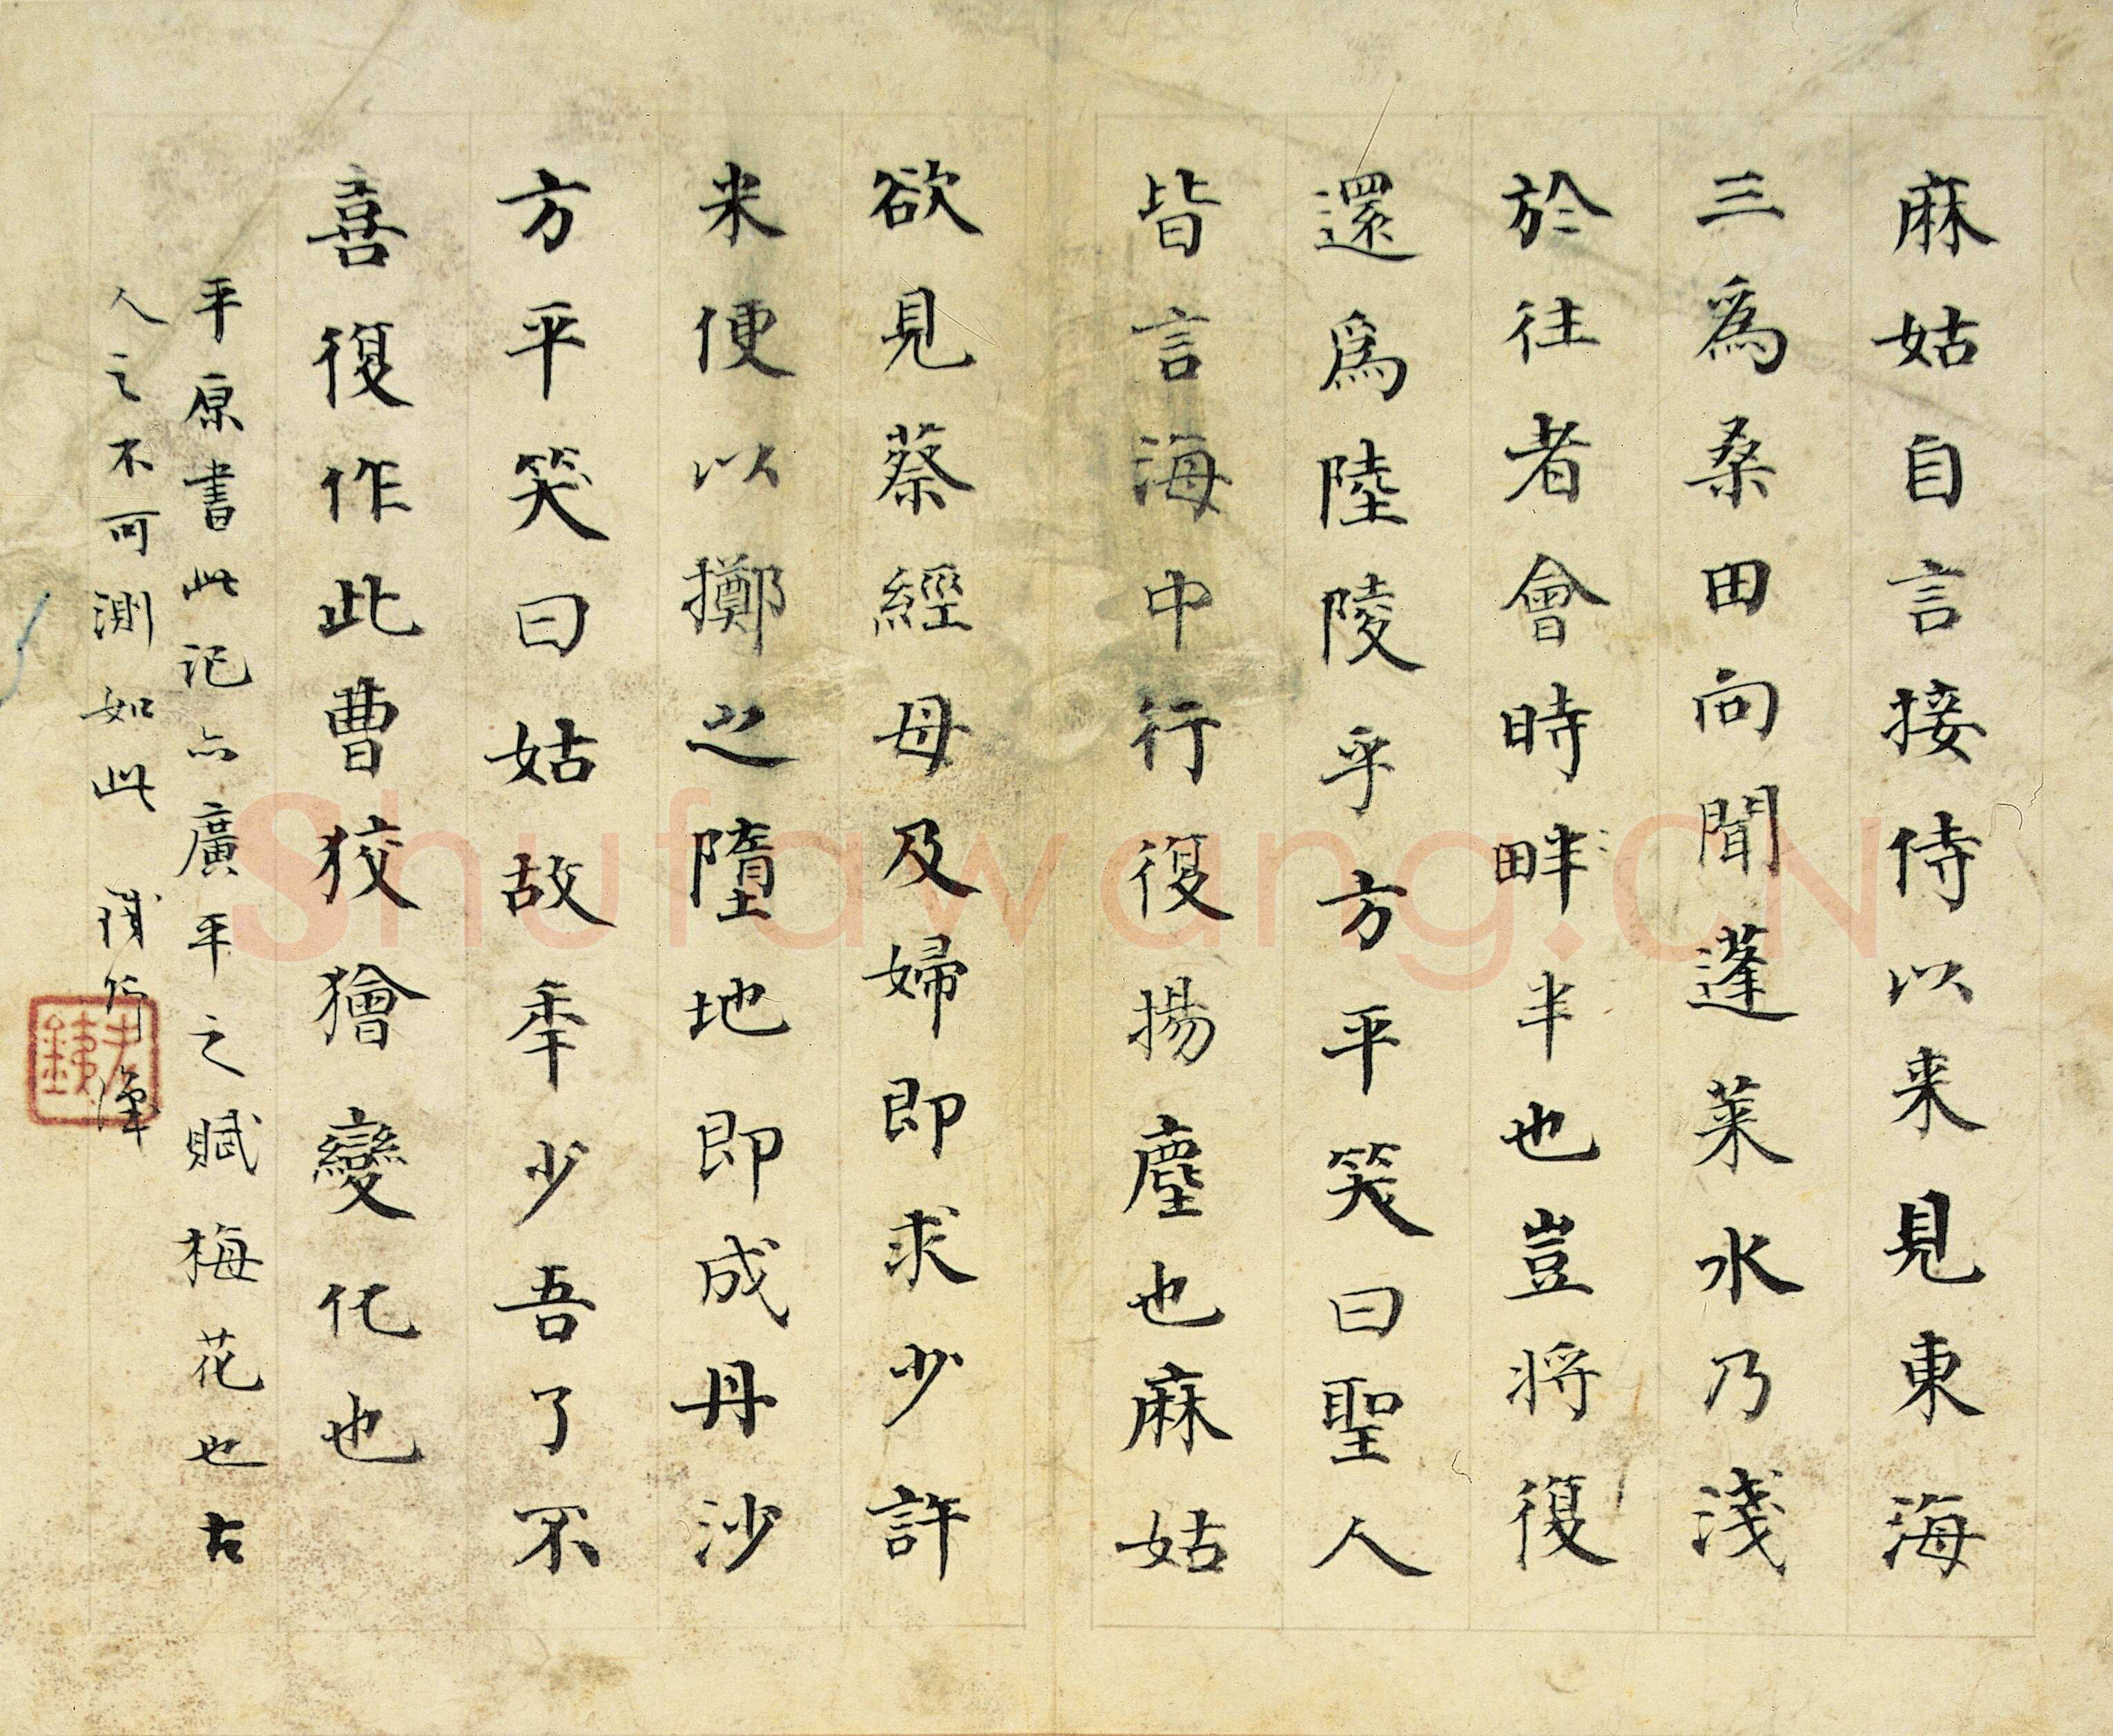 麻姑自言接侍以来見東海
三爲桑田向聞蓬萊水乃淺
於往者會時畔半也豈将復
還爲陸陵乎方平笑曰聖人
皆言海中行復揚塵也麻姑
欲見蔡經母及婦即求少許
米便以擲之墮地即成丹沙
方平笑曰姑故秊少吾了不
喜復作此曹狡獪變化也
平原書此記亦廣平之賦梅花也古
人之不可測如此
Shufawang.CN